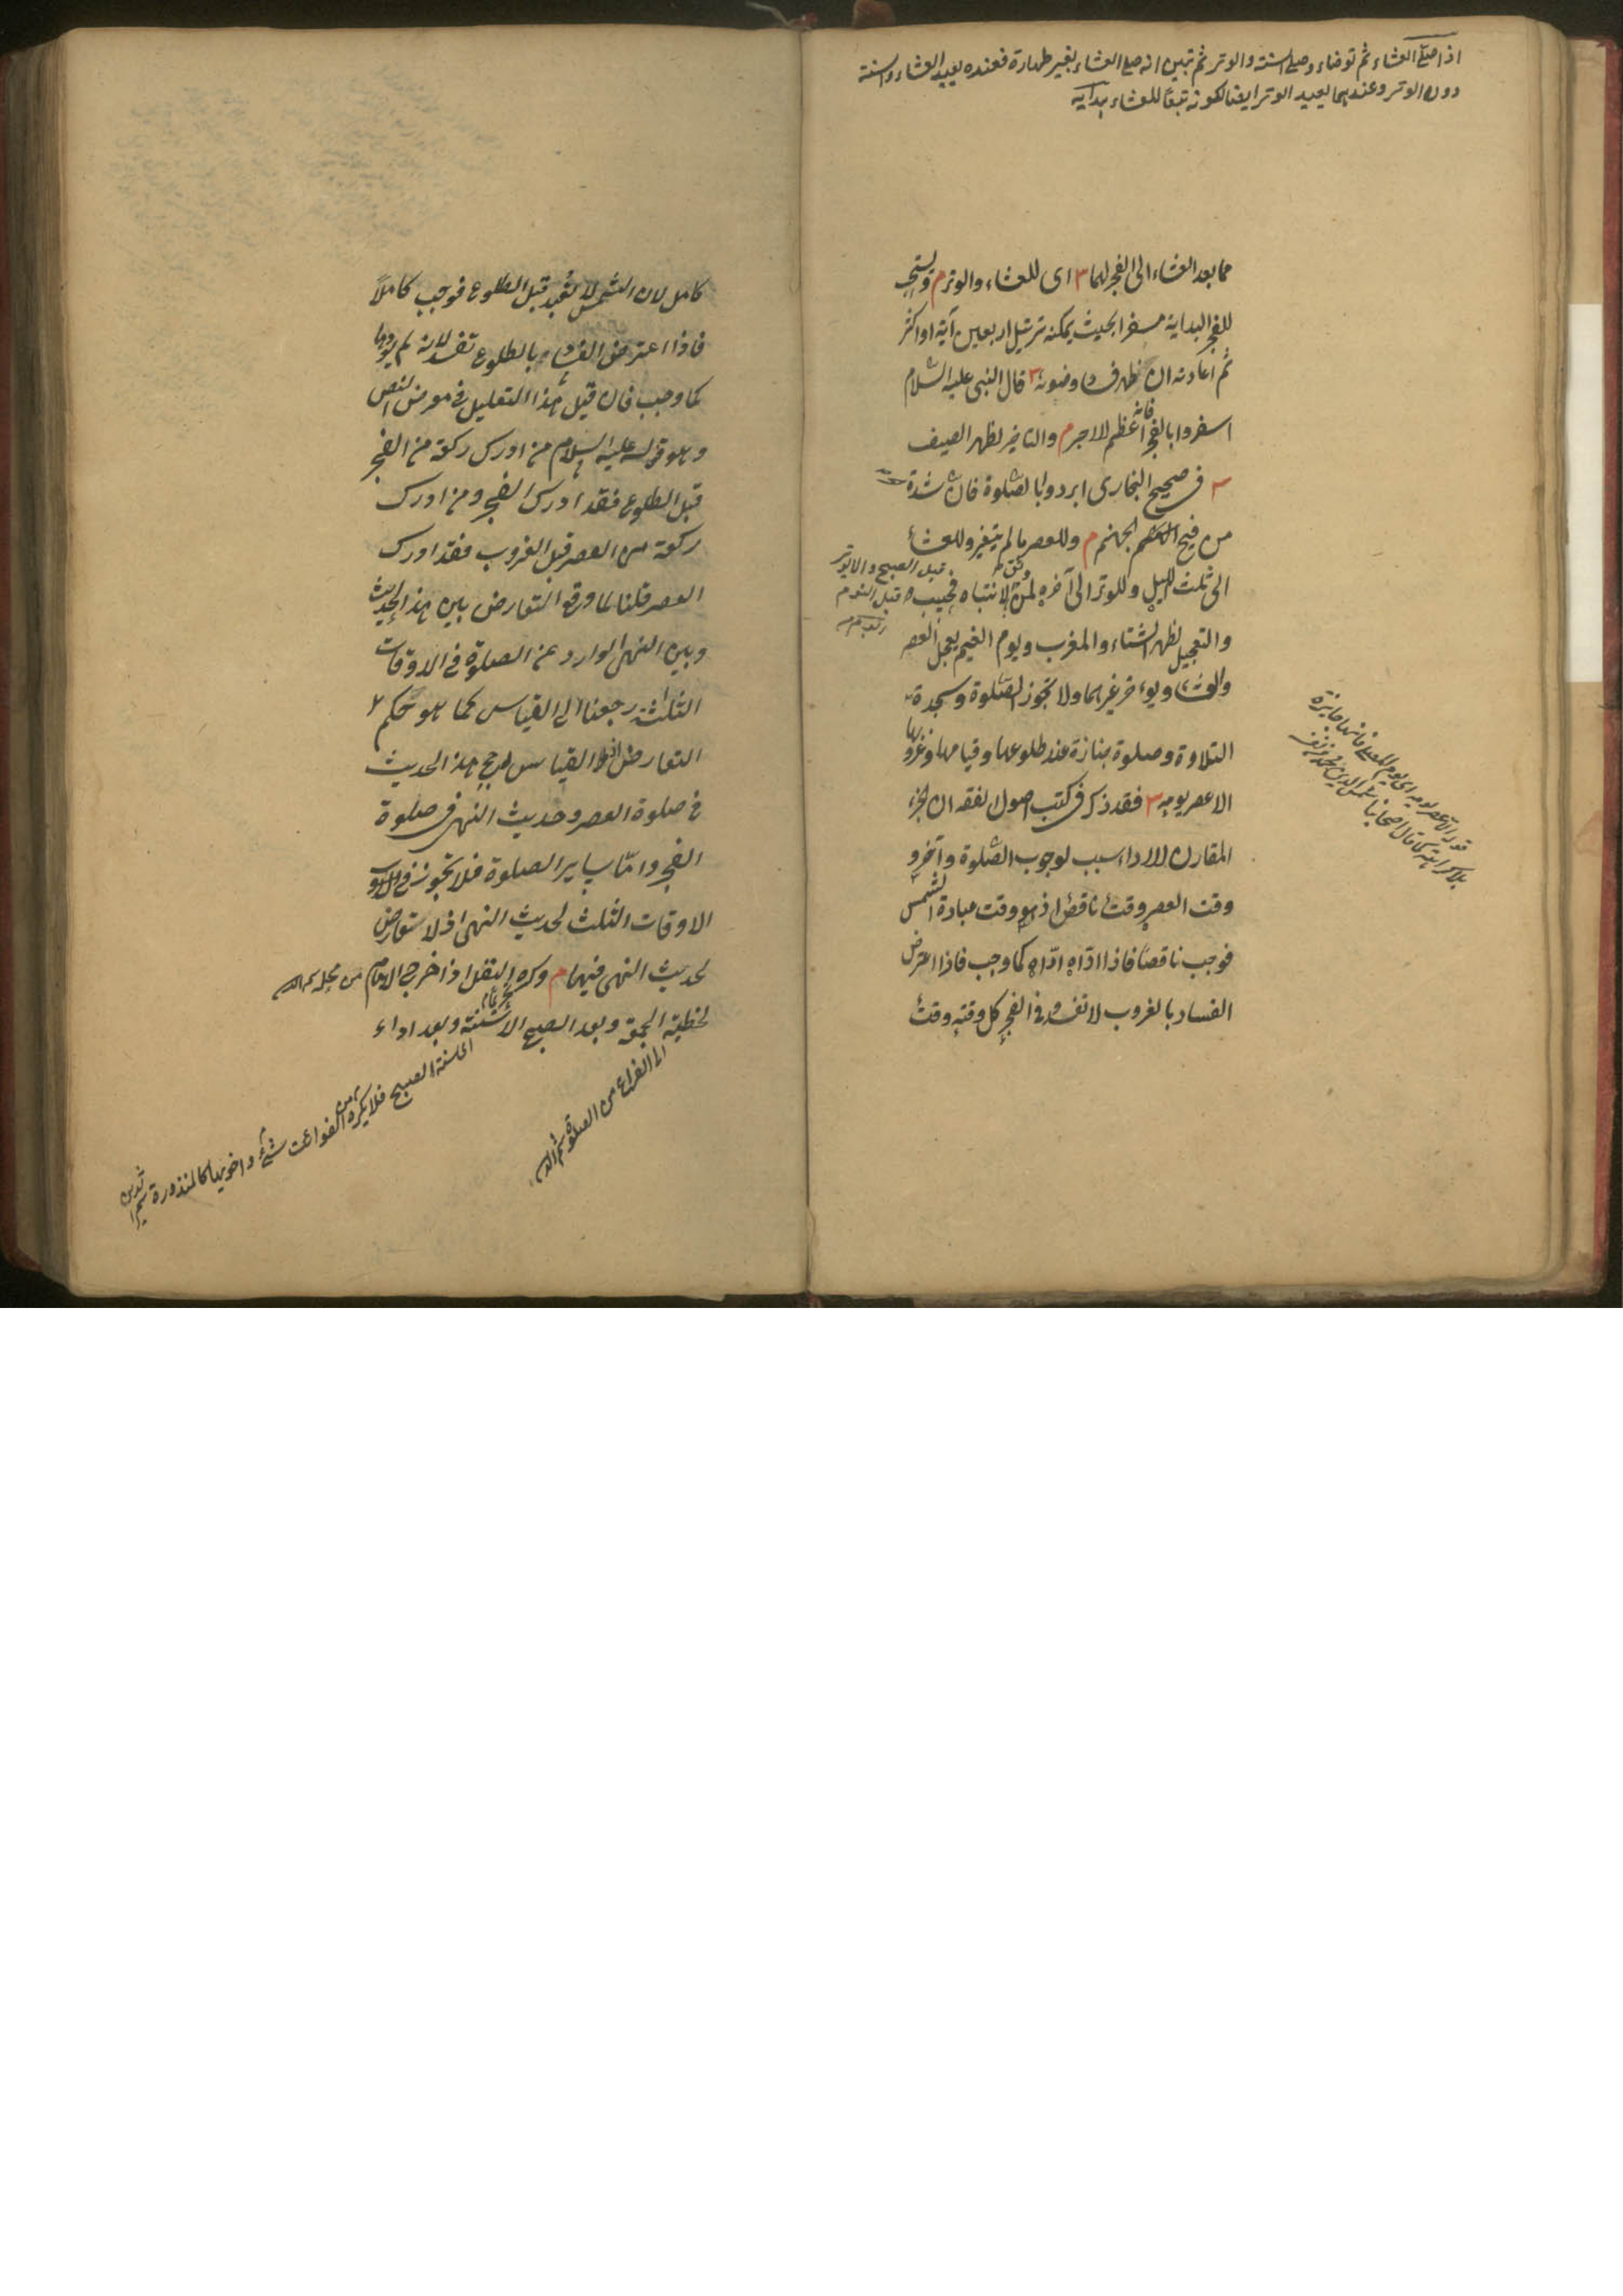 اذا صلى العشاء ثم توضاء وصلى السنة والوتر ثم تبين انه صلى العشاء بغير طهارة فعنده يعيد العشاء والسنة
دون الوتر وعندهما يعيد الوتر ايضا لكونه تبعًا للعشاء هدايه
مما بعد العشاء الى الفجر لهما اى للعشاء والوتر م ويستحب
للفجر البداية مسفرا بحيث يمكنه ترتيل اربعين آية او اكثر
ثم اعادته ان ظهر فساد وضوئه قال النبى عليه السلام
اسفروا بالفجر فانه اعظم للاجر م والتاخير لظهر الصيف
فى صحيح البخارى ابردوا بالصلوة فان شدة الحر
من فيح جهنم م وللعصر ما لم يتغير وللعشاء
الى ثلث الليل وللوتر الى آخره لمن وثق بالانتباه فحسب
قبل الصبح والا يوتر
قبل النوم
والتعجيل لظهر الشتاء والمغرب ويوم الغيم يعجل العصر
والعشاء ويؤخر غيرهما ولا تجوز الصلوة وسجدة
التلاوة وصلوة جنازة عند طلوعها وقيامها وغروبها
الا عصر يومه فقد ذكر فى كتب اصول الفقه ان الجزء
المقارن للاداء سبب لوجوب الصلوة وآخر
وقت العصر وقت ناقص اذ هو وقت عبادة الشمس
فوجب ناقصًا فاذا ادّاه ادّاه كما وجب فاذا اعترض
الفساد بالغروب لا تفسد وفى الفجر كل وقته وقت
قوله الا عصر يومه اى يوم المصلى فانها جايزة
بلا كراهة كما قال اصحابنا شمس الدين محمد
كامل لان الشمس لا تعبد قبل الطلوع فوجب كاملًا
فاذا اعترض الفساد بالطلوع تفسد لانه لم يؤدها
كما وجب فان قيل هذا التعليل فى معرض النص
وهو قوله عليه السلام من ادرك ركعة من الفجر
قبل الطلوع فقد ادرك الفجر ومن ادرك
ركعة من العصر قبل الغروب فقد ادرك
العصر قلنا لما وقع التعارض بين هذا الحديث
وبين النهى الوارد عن الصلوة فى الاوقات
الثلثة رجعنا الى القياس كما هو حكم
التعارض والقياس مرجح هذا الحديث
فى صلوة العصر وحديث النهى فى صلوة
الفجر وامّا ساير الصلوة فلا تجوز فى
الاوقات الثلث لحديث النهى اذ لا تعارض
لحديث النهى فيها م وكره النفل اذا خرج الامام
لخطبة الجمعة وبعد الصبح الا سنته وبعد اداء
الى الفراغ من الصلوة
اى سنة الصبح فلا يكره من الفوائت شئ واخويها كالمنذورة